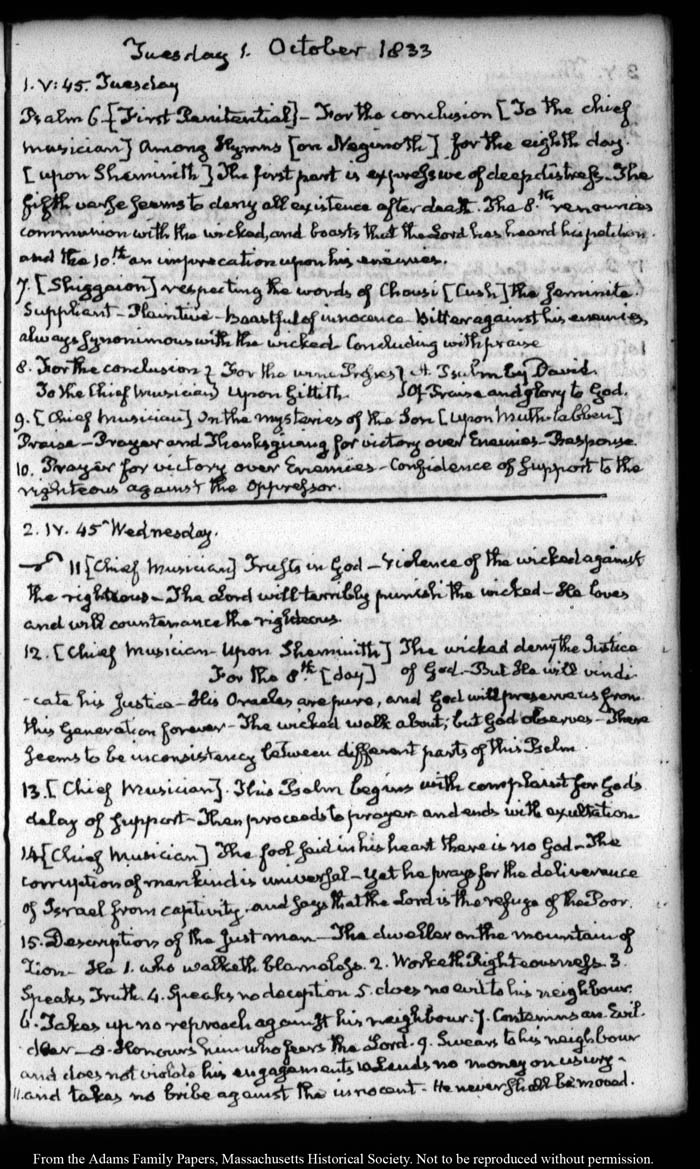 Tuesday 1. October 1833
1. V: 45. Tuesday
Psalm 6. [First Penitential] - For the conclusion [To the chief
musician] Among Hymns [on Neginoth] for the eighth day.
[upon Sheminith] The first part is expressive of deep distress - The
fifth verse seems to deny all existence after death. The 8.th renounces
communion with the wicked, and boasts that the Lord has heard his petition.
and the 10.th an imprecation upon his enemies.
7. [Shiggaion] respecting the words of Chousi [Cush] the Jeminite.
Suppliant - Plaintive - boastful of innocence. Bitter against his enemies,
always synonimous with the wicked. Concluding with praise
8. For the conclusion } For the wine Presses } A Psalm by David.
To the Chief Musician } Upon Gittith. } Of Praise and glory to God.
9. [Chief Musician] On the mysteries of the Son [upon Muth-labben]
Praise - Prayer and Thanksgiving for victory over Enemies - Response.
10. Prayer for victory over Enemies - Confidence of support to the
righteous against the oppressor.
2. IV. 45 Wednesday.
11 [Chief Musician] Trusts in God - violence of the wicked against
the righteous - The Lord will terribly punish the wicked - He loves
and will countenance the righteous.
12. [Chief Musician - Upon Sheminith] The wicked deny the Justice
For the 8.th [day] of God - But He will vindi
-cate his Justice - His Oracles are pure, and God will preserve us from
this Generation forever - The wicked walk about; but God observes - There
seems to be inconsistency between different parts of this Psalm.
13. [Chief Musician]. This Psalm begins with complaint for God's
delay of support - Then proceeds to prayer and ends with exultation.
14 [Chief Musician] The fool said in his heart there is no God - The
corruption of mankind is universal - Yet he prays for the deliverance
of Israel from captivity, and says that the Lord is the refuge of the Poor.
15. Description of the Just man - The dweller on the mountain of
Zion - He 1. who walketh blameless. 2. Worketh Righteousness. 3.
Speaks Truth. 4. Speaks no deception 5. does no evil to his neighbour.
6. Takes up no reproach against his neighbour. 7. Contemns an Evil
doer - 8. Honours him who fears the Lord. 9. Swears to his neighbour
and does not violate his engagements 10 Lends no money on usury -
11. and takes no bribe against the innocent - He never shall be moved.
From the Adams Family Papers, Massachusetts Historical Society. Not to be reproduced without permission.